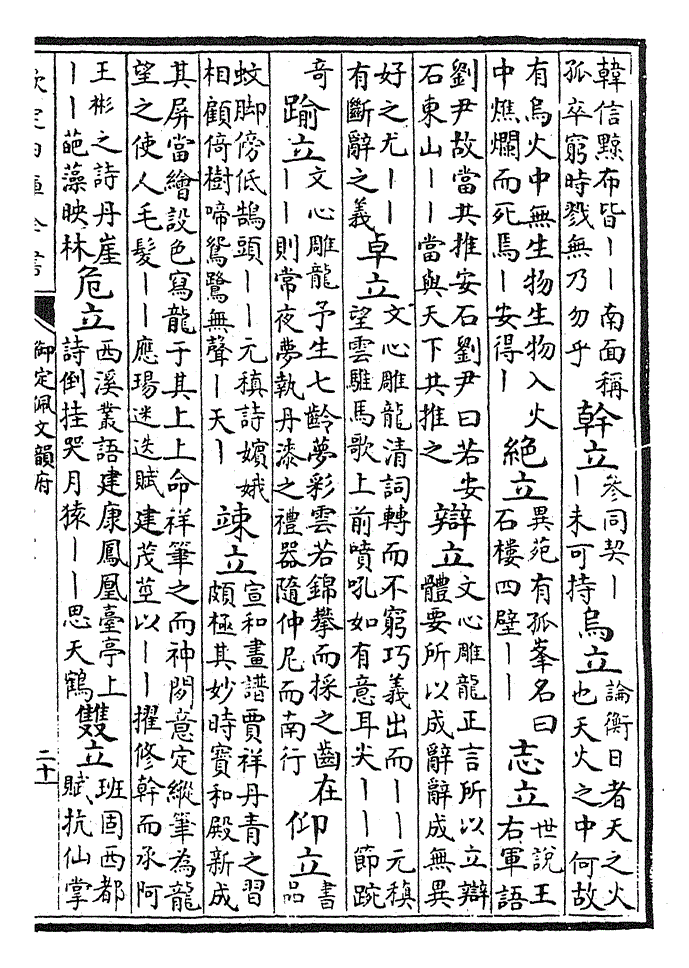 韓信黥布皆——南面稱
孤卒窮時戮無乃勿乎
幹立
參同契—
—未可持
烏立
論衡日者天之火
也天火之中何故
有烏火中無生物生物入火
中燋爛而死焉—安得—
絕立
異苑有孤峯名曰
石樓四壁——
志立
世說王
右軍語
劉尹故當共推安石劉尹曰若安
石東山——當與天下共推之
辯立
文心雕龍正言所以立辯
體要所以成辭辭成無異
好之尤——
有斷辭之義
卓立
文心雕龍清詞轉而不窮巧義出而——元稹
望雲騅馬歌上前噴吼如有意耳尖——節踠
奇
踰立
文心雕龍予生七齡夢彩雲若錦攀而採之齒在
——則常夜夢執丹漆之禮器隨仲尼而南行
仰立
書
品
蚊脚傍低鵠頭——元稹詩嬪娥
相顧倚樹啼鴛鷺無聲—天—
竦立
宣和畫譜賈祥丹青之習
頗極其妙時寶和殿新成
其屏當繪設色寫龍于其上上命祥筆之而神閒意定縱筆為龍
望之使人毛髮——應瑒迷迭賦建茂莖以——擢修幹而承阿
王彬之詩丹崖
——葩藻映林
危立
西溪叢語建康鳳凰臺亭上
詩倒挂哭月猿——思天鶴
雙立
班固西都
賦抗仙掌
欽定四庫全書
御定佩文韻府
二十